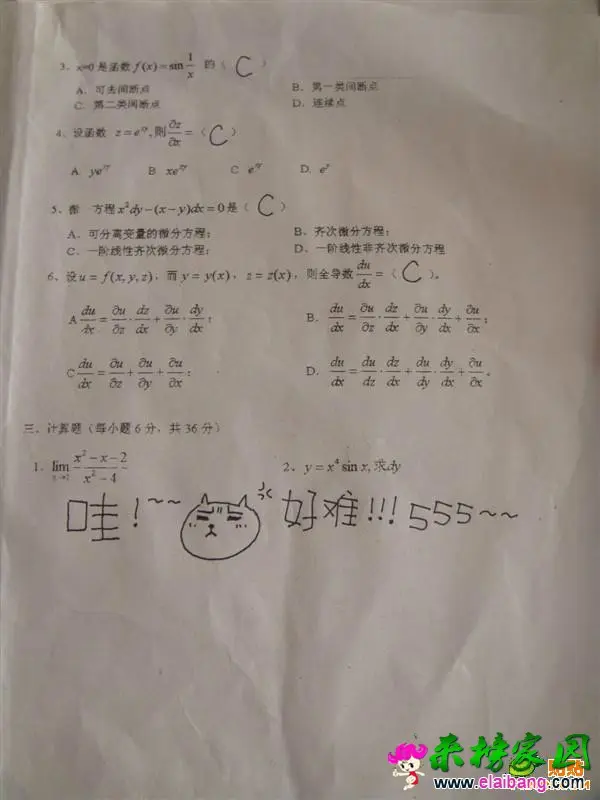 3、x=0 是函数 f(x) = sin 1/x 的（ C ）
A. 可去间断点 B. 第一类间断点
C. 第二类间断点 D. 连续点
4、设函数 z = e^{xy}, 则 ∂z/∂x = （ C ）
A. ye^{xy} B xe^{xy} C e^{xy} D. e^y
5、微 方程 x²dy-(x-y)dx=0 是（ C ）
A. 可分离变量的微分方程； B、齐次微分方程；
C. 一阶线性齐次微分方程； D、一阶线性非齐次微分方程
6、设 u = f(x,y,z)，而 y = y(x)，z = z(x)，则全导数 du/dx =（ C ）。
A du/dx = ∂u/∂z · dz/dx + ∂u/∂y · dy/dx； B. du/dx = ∂u/∂z · dz/dx + ∂u/∂y · dy/dx + ∂u/∂x；
C du/dx = ∂u/∂z + ∂u/∂y + ∂u/∂x； D. du/dx = du/dz · dz/dx + du/dy · dy/dx + ∂u/∂x。
三、计算题（每小题6分，共36分）
1. lim x²-x-2/x²-4 2、y = x⁴ sin x, 求dy
哇！~~ 好难!!! 555~~
来榜家园
贴贴
www.elaibang.com